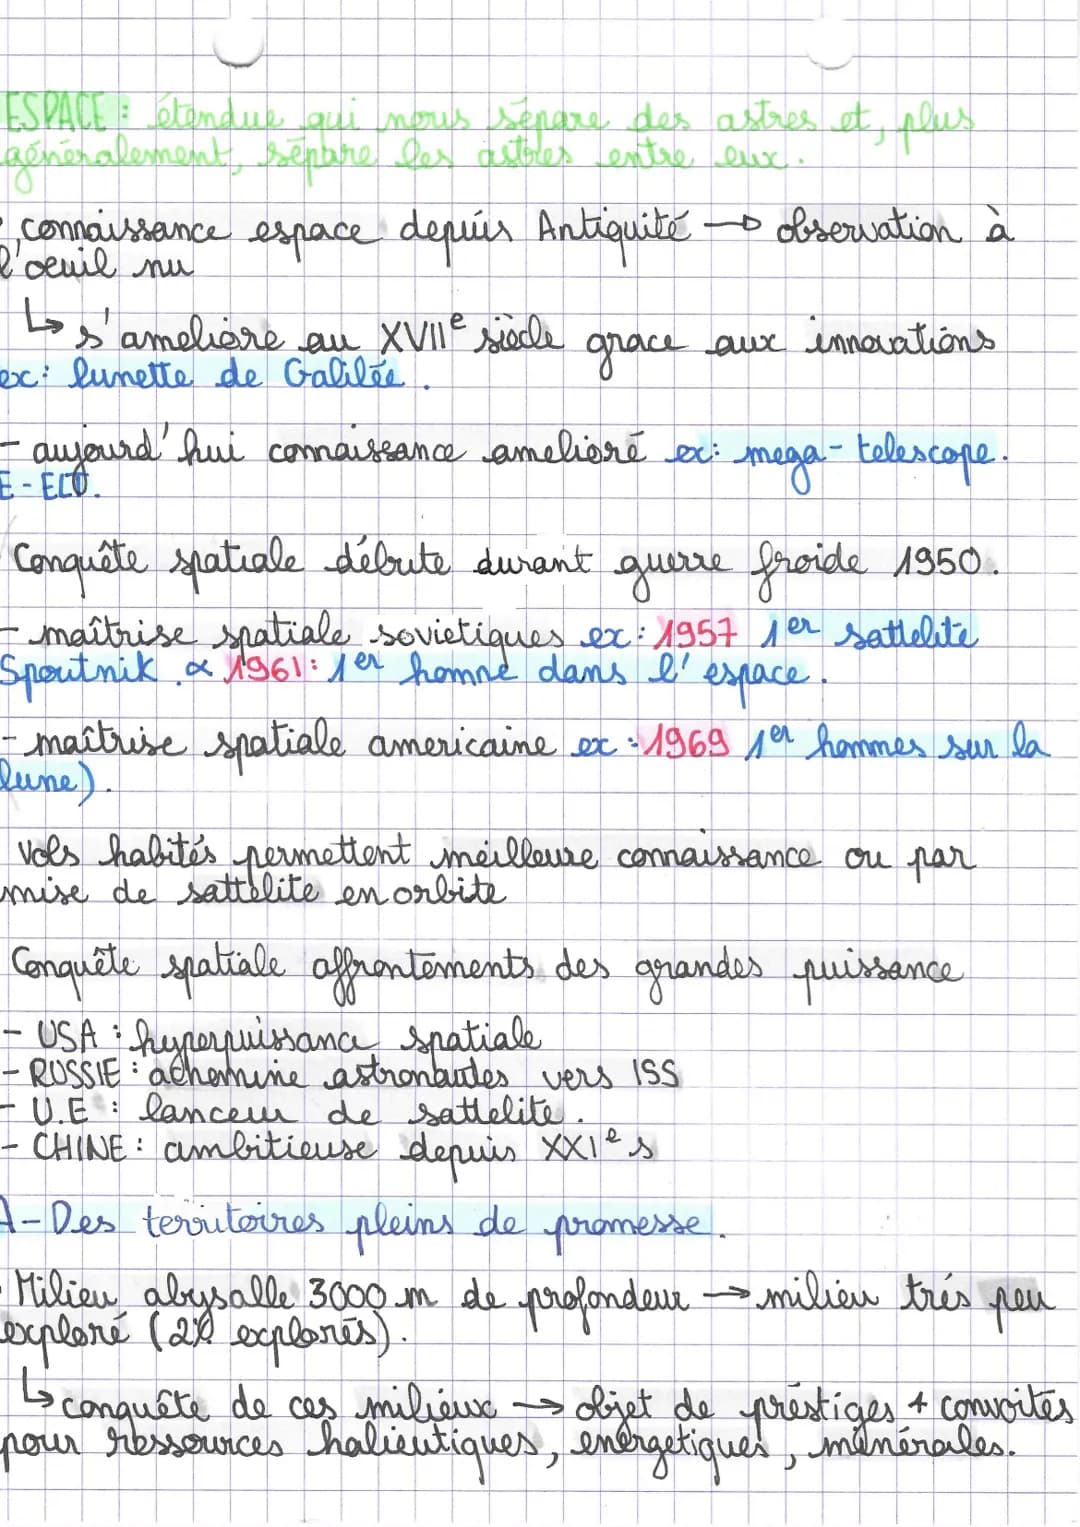 ESPACE : étendue qui nous sépare des astres et, plus
généralement, sépare les astres entre eux.
- connaissance espace depuis Antiquité → observation à
l'oeuil nu
↳ s'ameliore au XVIIe siècle grace aux innovations
ex: lunette de Galilée.
- aujourd'hui connaissance amelioré ex: mega-telescope.
E-ELT.
Conquête spatiale débute durant guerre froide 1950.
- maîtrise spatiale sovietiques ex: 1957 1er sattelite
Spoutnik & 1961: 1er homme dans l'espace.
- maîtrise spatiale americaine ex: 1969 1er hommes sur la
lune).
Vols habités permettent meilleure connaissance ou par
mise de sattelite en orbite
Conquête spatiale affrontements des grandes puissance
- USA : hyperpuissance spatiale
- RUSSIE : achemine astronautes vers ISS
- U.E : lanceur de sattelite.
- CHINE : ambitieuse depuis XXIe s
A- Des territoires pleins de promesse.
- Milieu abysalle 3000 m de profondeur → milieu trés peu
exploré (2% explorés).
↳ conquête de ces milieux → objet de préstiges + convoités
pour ressources halieutiques, energetiques, minérales.